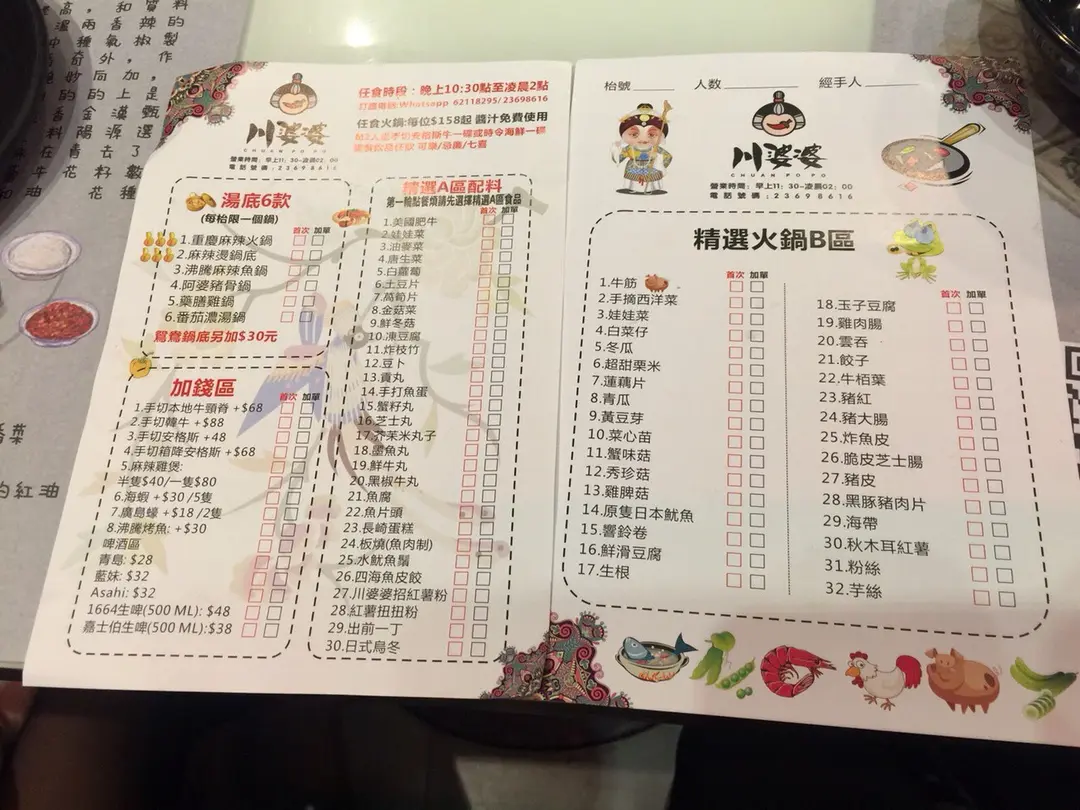 川婆婆
CHUAN PO PO
營業時間：早上11:30-凌晨02:00
電話號碼：23698616
任食時段：晚上10:30點至凌晨2點
訂座電話:Whatsapp 62118295/23698616
任食火鍋:每位$158起 醬汁免費使用
湯底6款
(每枱限一個鍋)
首次 加單
1.重慶麻辣火鍋
2.麻辣燙鍋底
3.沸騰麻辣魚鍋
4.阿婆豬骨鍋
5.藥膳雞鍋
6.番茄濃湯鍋
鴛鴦鍋底另加$30元
加錢區
首次 加單
1.手切本地牛頸脊 +$68
2.手切韓牛 +$88
3.手切安格斯 +48
4.手切箱降安格斯 +$68
5.麻辣雞煲:
半隻$40/一隻$80
6.海蝦 +$30 /5隻
7.廣島蠔 +$18 /2隻
8.沸騰烤魚: +$30
啤酒區
青島: $28
藍妹: $32
Asahi: $32
1664生啤(500 ML): $48
嘉士伯生啤(500 ML):$38
精選A區配料
第一輪點餐煩請先選擇精選A區食品
首次 加單
1.美國肥牛
2.娃娃菜
3.油麥菜
4.唐生菜
5.白蘿蔔
6.土豆片
7.萵筍片
8.金菇菜
9.鮮冬菇
10.凍豆腐
11.炸枝竹
12.豆卜
13.貢丸
14.手打魚蛋
15.蟹籽丸
16.芝士丸
17.芥茉米丸子
18.墨魚丸
19.鮮牛丸
20.黑椒牛丸
21.魚腐
22.魚片頭
23.長崎蛋糕
24.板燒(魚肉制)
25.水魷魚鬚
26.四海魚皮餃
27.川婆婆招紅薯粉
28.紅薯扭扭粉
29.出前一丁
30.日式烏冬
枱號 人數 經手人
川婆婆
CHUAN PO PO
營業時間：早上11:30-凌晨02:00
電話號碼：23698616
精選火鍋B區
首次 加單
1.牛筋
2.手摘西洋菜
3.娃娃菜
4.白菜仔
5.冬瓜
6.超甜栗米
7.蓮藕片
8.青瓜
9.黃豆芽
10.菜心苗
11.蟹味菇
12.秀珍菇
13.雞脾菇
14.原隻日本魷魚
15.響鈴卷
16.鮮滑豆腐
17.生根
首次 加單
18.玉子豆腐
19.雞肉腸
20.雲吞
21.餃子
22.牛栢葉
23.豬紅
24.豬大腸
25.炸魚皮
26.脆皮芝士腸
27.豬皮
28.黑豚豬肉片
29.海帶
30.秋木耳紅薯
31.粉絲
32.芋絲